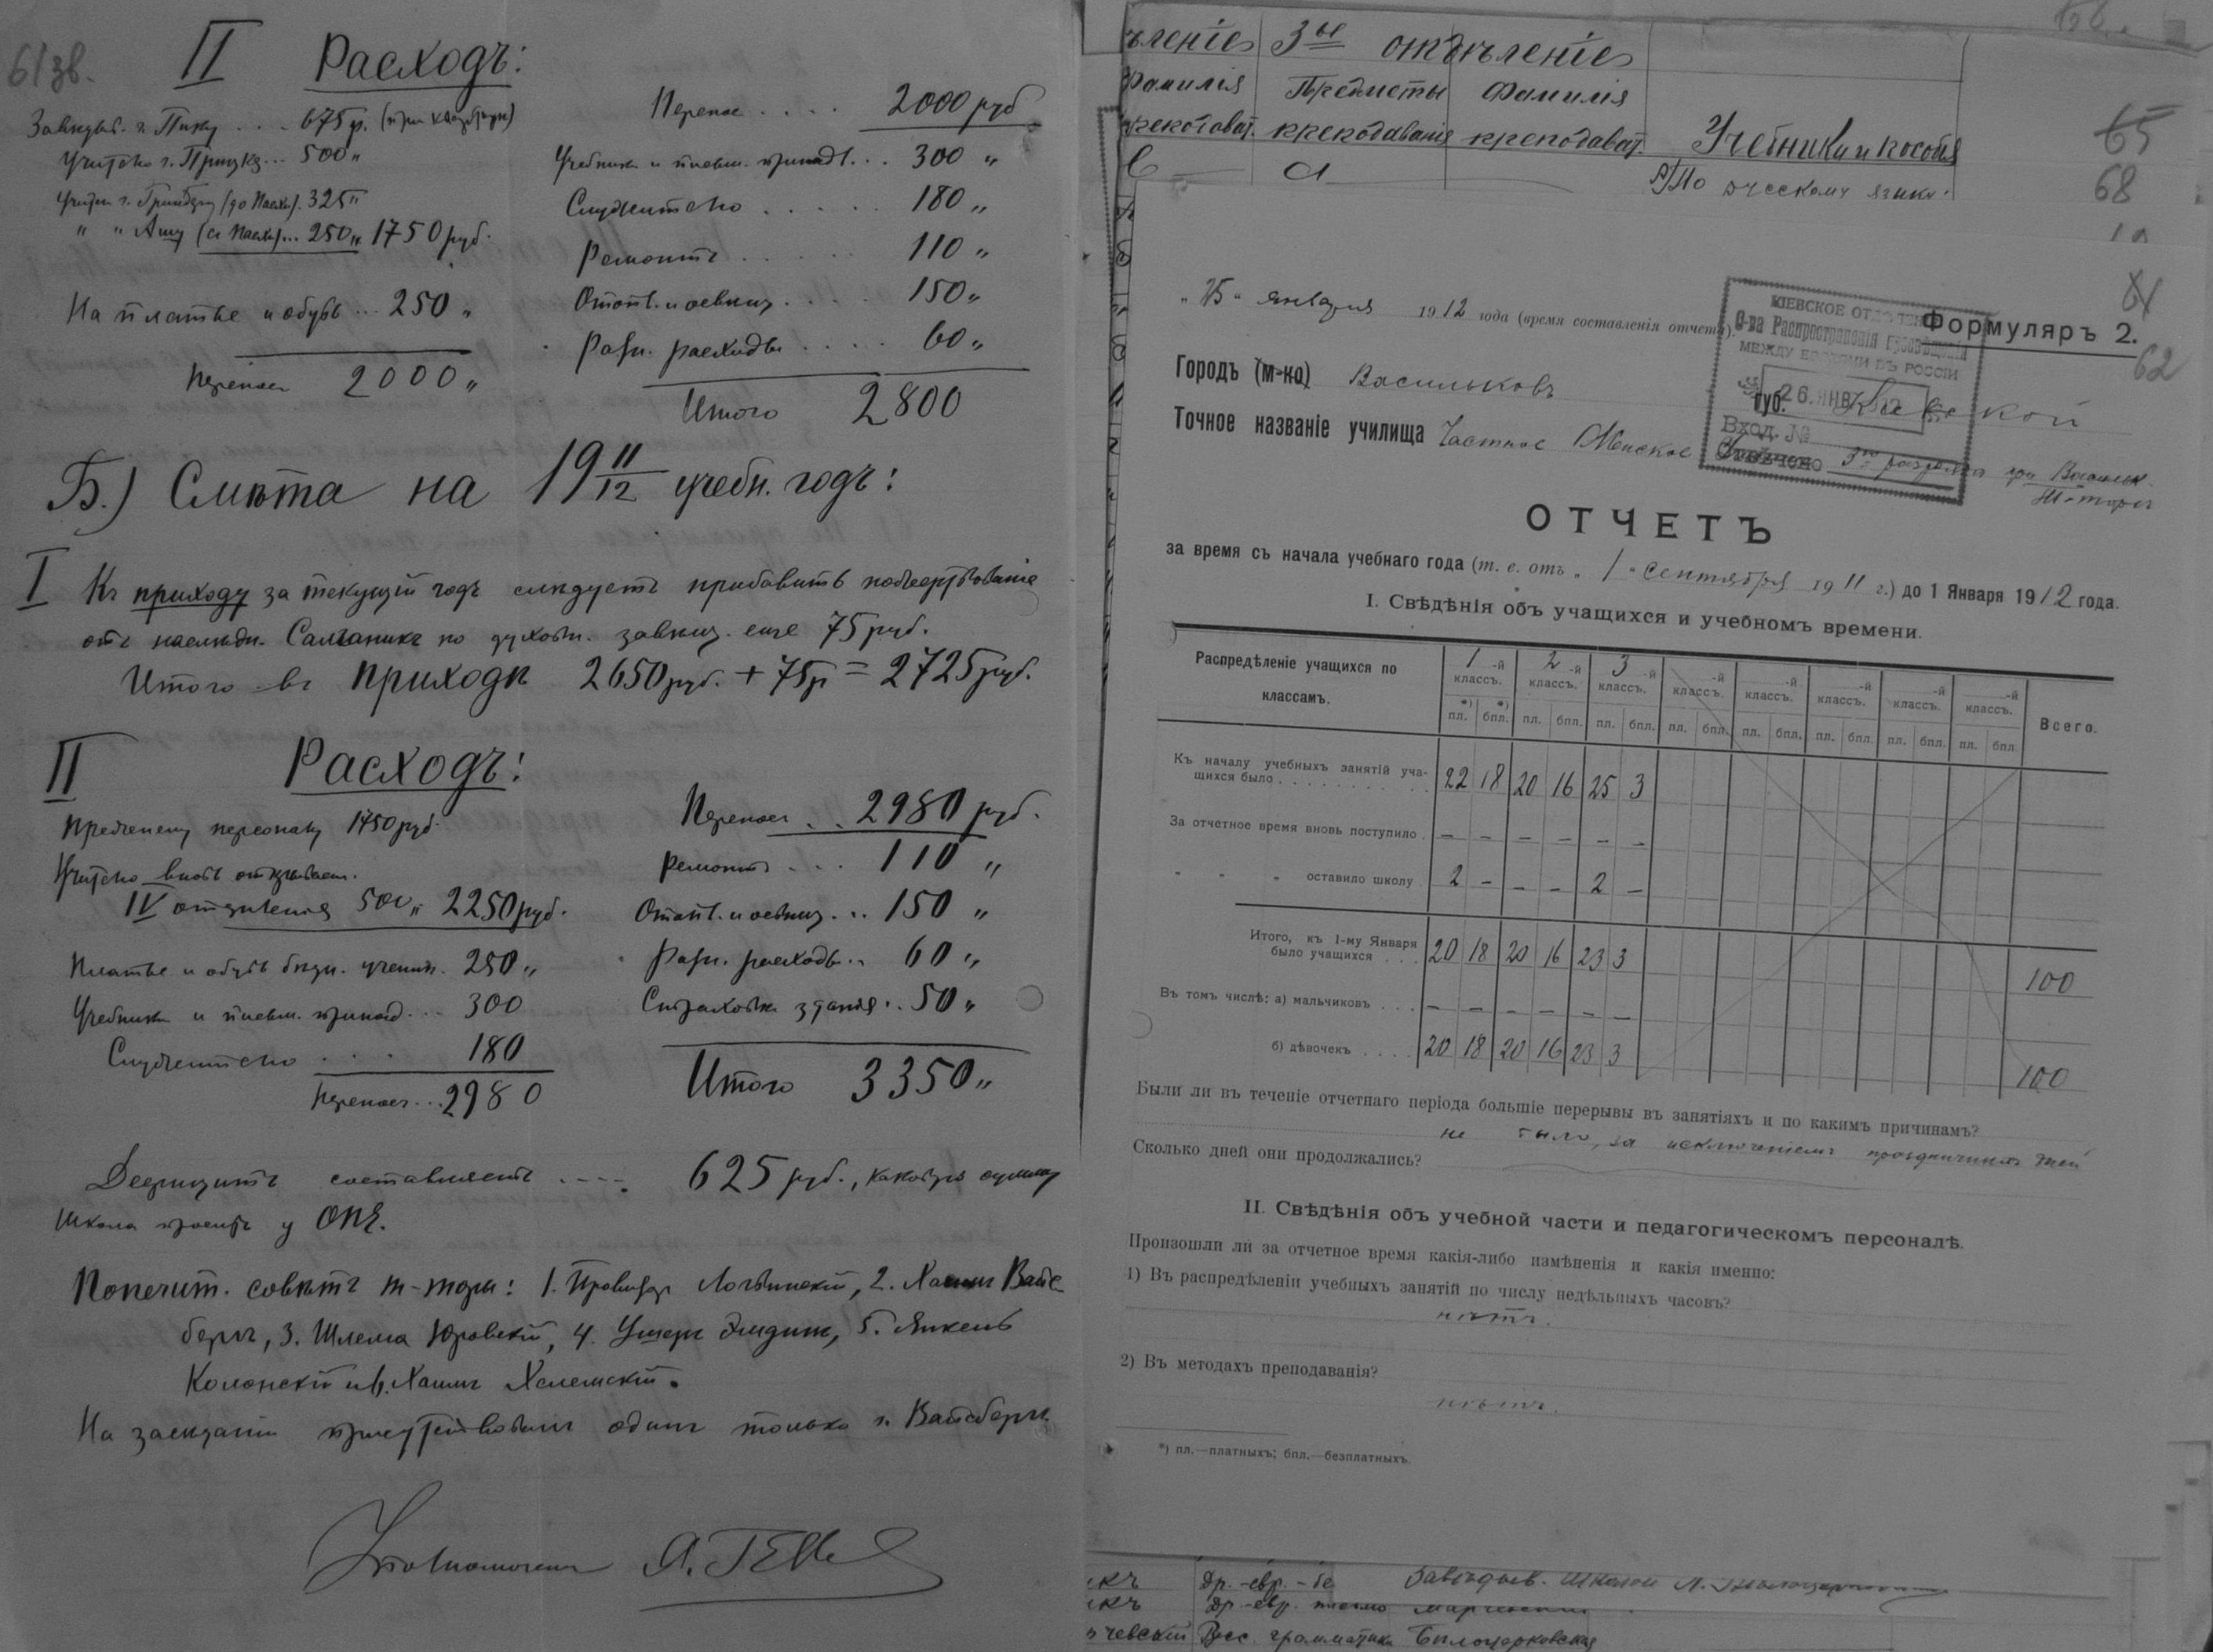 61зв.
II Расходъ:
Завѣдыв. г. Пику . . . 675 р. (при квартирѣ)
Учителю г. 500 „
Учител. г. (до Пасхи). 325 „
„ „ (съ Пасхи)... 250 „ 1750 руб.
На платье и обувь ... 250 „
Переносъ 2000 „
Перенос . . . . 2000 руб
Учебники и письм. принадл. . . 300 „
Служителю . . . . . 180 „
Ремонтъ . . . . . 110 „
Отопл. и освѣщ. . . . . 150 „
Разн. расходы . . . . . 60 „
Итого 2800
Б.) Смѣта на 19 11/12 учебн. годъ:
I Къ приходу за текущій годъ слѣдуетъ прибавить пожертвованіе
отъ наслѣдн. по духовн. завѣщ. еще 75 руб.
Итого въ приходѣ 2650 руб. + 75 р = 2725 руб.
II Расходъ:
Прежнему персоналу 1750 руб.
Учителю вновь открываем.
IV отдѣленія 500 „ 2250 руб.
Платье и обувь бѣдн. учениц. 250 „
Учебники и письм. принад. ... 300
Служителю . . . 180
Переносъ ... 2980
Переносъ . . 2980 руб.
Ремонтъ . . . 110 „
Отопл. и освѣщ. ... 150 „
Разн. расходы .. 60 „
Страховка зданія .. 50 „
Итого 3350 „
Дефицитъ составляетъ .... 625 руб., каковую сумму
школа проситъ у ОПЕ.
Попечит. совѣтъ т-торы: 1. Провизоръ 2. Хаимъ Вайс-
бергъ, 3. Шлема Юровскій, 4. Ушеръ 5. Янкель
и 6. Хаимъ
На засѣданіи присутствовалъ одинъ только г. Вайсбергъ.
Уполномочен
ъленіе 3ье отдѣленіе
Фамилія Предметы Фамилія
преподават. преподаванія преподават. Учебники и пособія
а) По русскому языку:
65
68
61
62
„ 25 „ января 1912 года (время составленія отчета).
Формуляръ 2.
КІЕВСКОЕ ОТДѢЛЕНІЕ
О-ва Распространенія Просвѣщенія
МЕЖДУ ЕВРЕЯМИ ВЪ РОССІИ
26. ЯНВ. 1912
Вход. №
Отвѣчено
Городъ (м-ко) Васильковъ губ. Кіевской
Точное названіе училища Частное Женское 3го разряда при Васильк.
Т-торѣ
ОТЧЕТЪ
за время съ начала учебнаго года (т. е. отъ „ 1 „ сентября 1911 г.) до 1 Января 1912 года.
I. Свѣдѣнія объ учащихся и учебномъ времени.
Распредѣленіе учащихся по классамъ. 1-й классъ. 2-й классъ. 3-й классъ. -й классъ. -й классъ. -й классъ. -й классъ. -й классъ. Всего.
*) пл. *) бпл. пл. бпл. пл. бпл. пл. бпл. пл. бпл. пл. бпл. пл. бпл. пл. бпл.
Къ началу учебныхъ занятій уча-
щихся было . . . . . . . . . . 22 18 20 16 25 3
За отчетное время вновь поступило . – – – – – –
„ „ „ оставило школу 2 – – – 2 –
Итого, къ 1-му Января
было учащихся . . . 20 18 20 16 23 3 100
Въ томъ числѣ: а) мальчиковъ . . . – – – – – –
б) дѣвочекъ . . . . 20 18 20 16 23 3 100
Были ли въ теченіе отчетнаго періода большіе перерывы въ занятіяхъ и по какимъ причинамъ?
не было, за исключеніемъ праздничныхъ дней
Сколько дней они продолжались?
II. Свѣдѣнія объ учебной части и педагогическомъ персоналѣ.
Произошли ли за отчетное время какія-либо измѣненія и какія именно:
1) Въ распредѣленіи учебныхъ занятій по числу недѣльныхъ часовъ?
нѣтъ.
2) Въ методахъ преподаванія?
нѣтъ.
*) пл.—платныхъ; бпл.—безплатныхъ.
Др.-евр.-бе Завѣдыв. школой
Др.-евр. письмо
чевскій Русс. грамматика Бѣлоцерковская